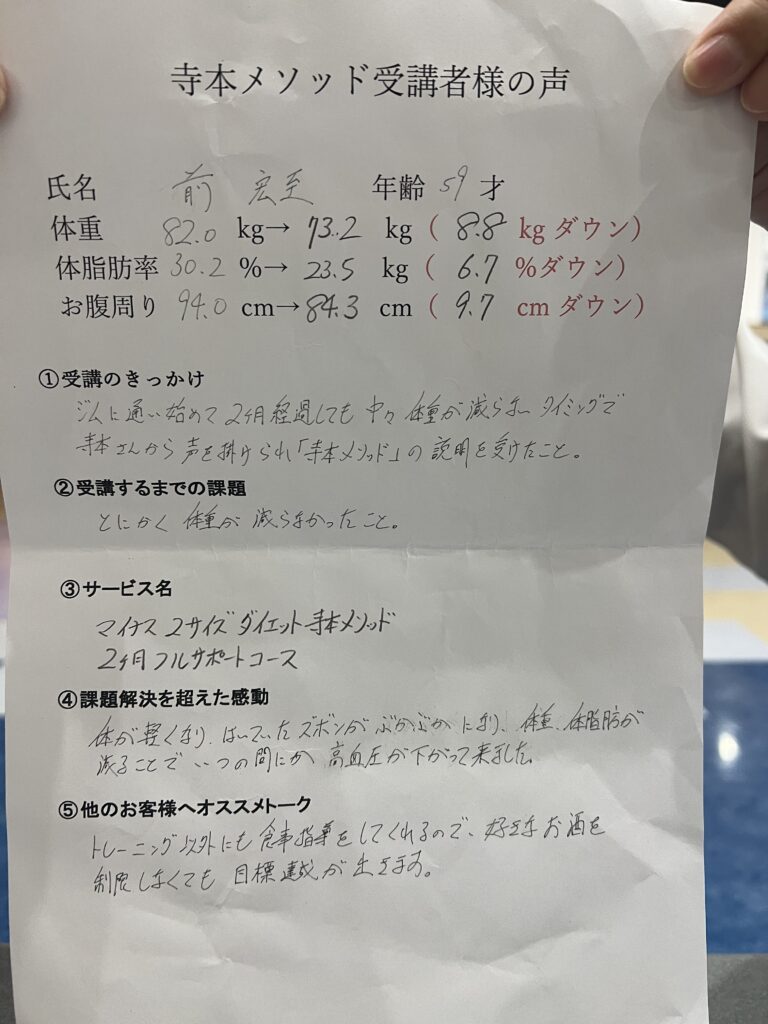 寺本メソッド受講者様の声
氏名 前 宏至 年齢 59 才
体重 82.0 kg→ 73.2 kg ( 8.8 kg ダウン)
体脂肪率 30.2 %→ 23.5 kg ( 6.7 %ダウン)
お腹周り 94.0 cm→ 84.3 cm ( 9.7 cm ダウン)
①受講のきっかけ
ジムに通い始めて 2ヶ月経過しても 中々 体重が減らない タイミングで
寺本さんから 声を掛けられ「寺本メソッド」の 説明を受けたこと。
②受講するまでの課題
とにかく 体重が 減らなかったこと。
③サービス名
マイナス2サイズダイエット寺本メソッド
2ヶ月フルサポートコース
④課題解決を超えた感動
体が軽くなり、はいていたズボンがぶかぶかになり、体重、体脂肪が
減ることで いつの間にか 高血圧が下がって来ました。
⑤他のお客様へオススメトーク
トレーニング以外にも 食事指導をしてくれるので、好きなお酒を
制限しなくても 目標達成が出来ます。